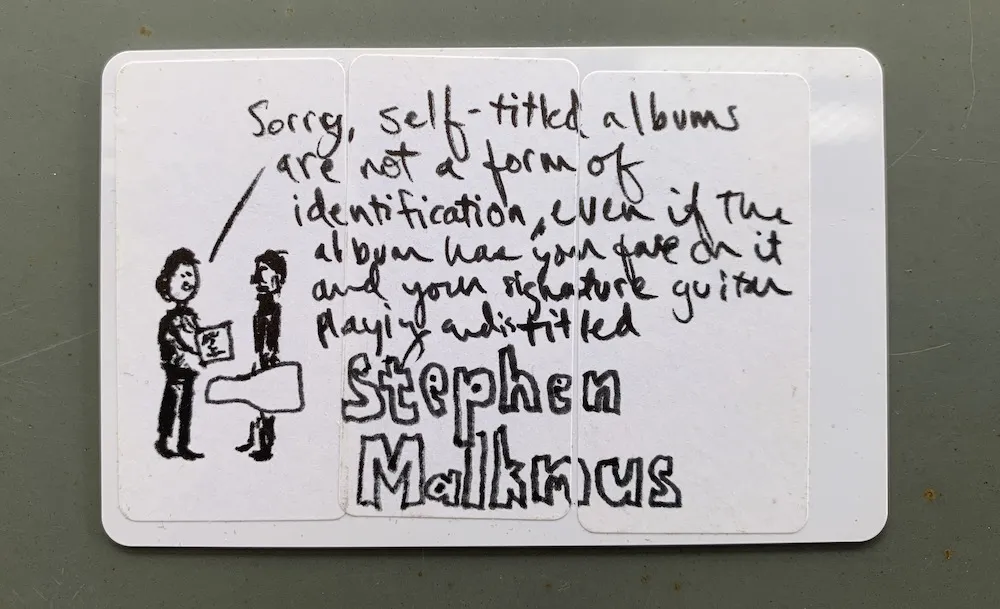 Sorry, self-titled albums
are not a form of
identification, even if the
album has your face on it
and your signature guitar
playing and is titled
Stephen
Malkmus